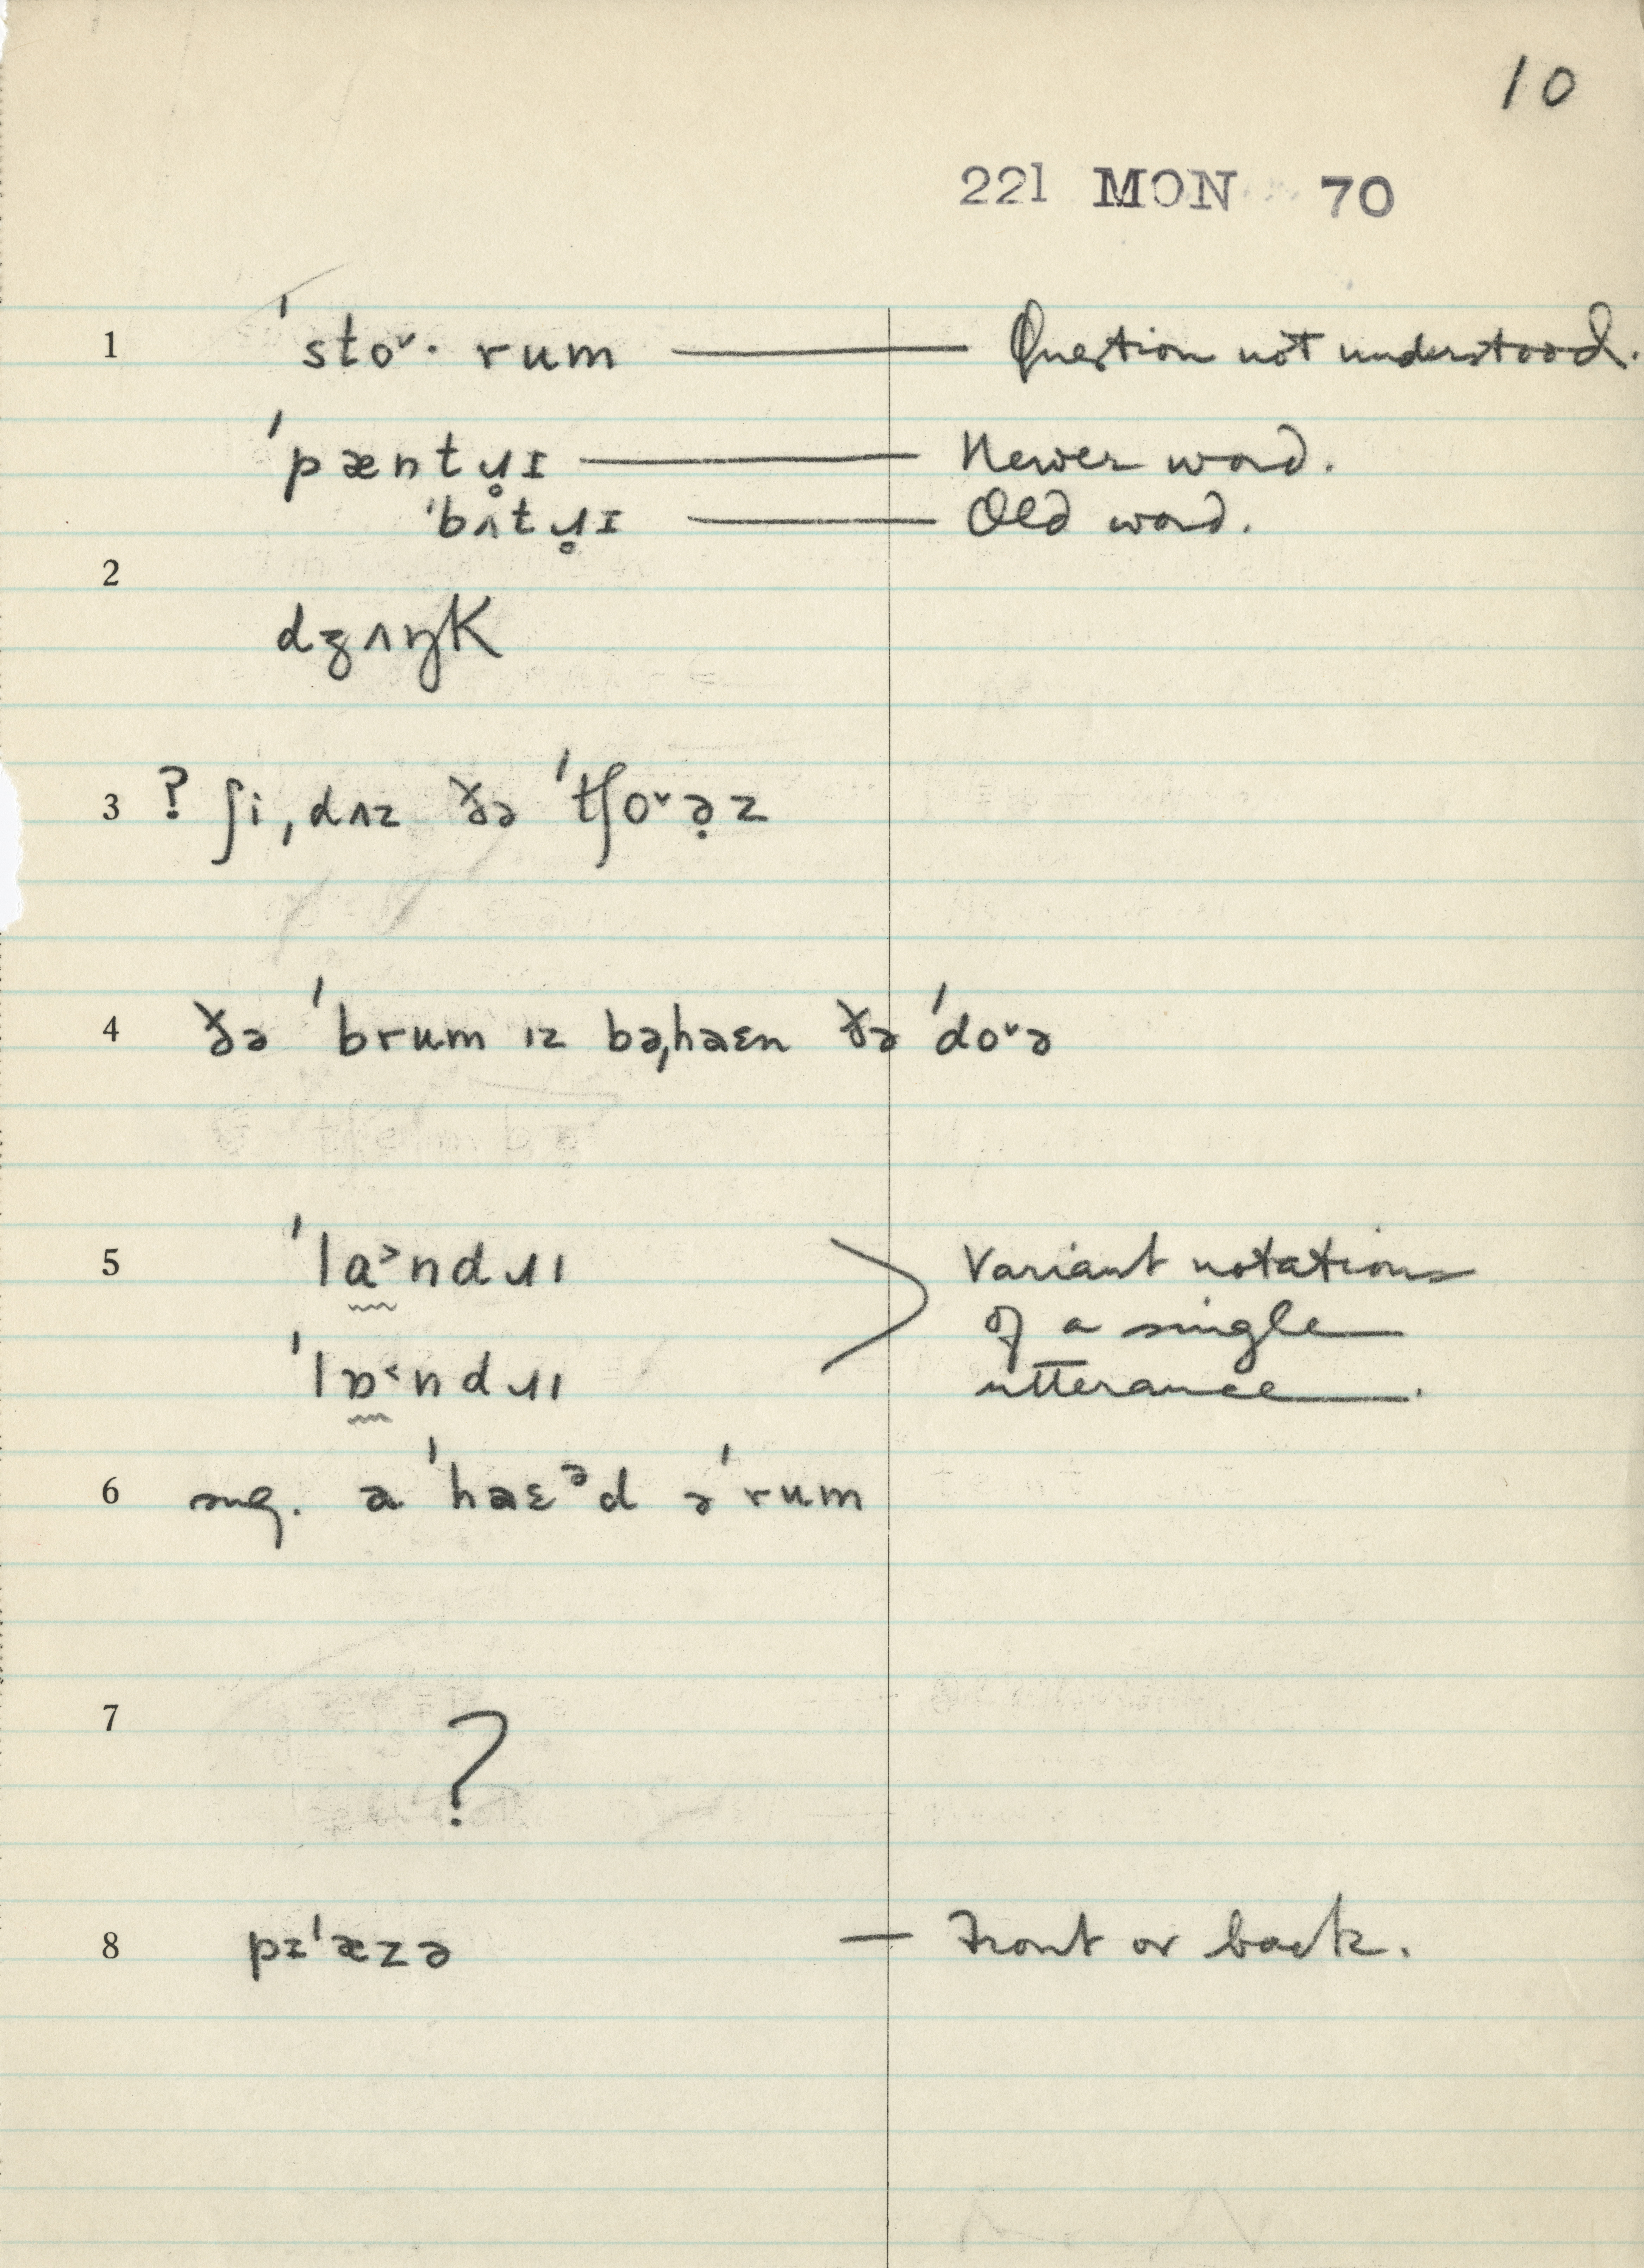 10
221 MON 70
1 ˈstoˇ· rum — Question not understood.
ˈpæntɹ̥ɪ — Newer word.
ˈbʌtɹ̥ɪ — Old word.
2
dʒʌŋk
3 ? ʃi ˌdʌz ðə ˈtʃoˇə̣z
4 ðə ˈbrum ɪz bəˌhaɛn ðə ˈdoˇə
5 ˈla˃ndɹɪ Variant notations
of a single
ˈlɒ˂ndɹɪ utterance.
6 sug. a ˈhaɛᵊd ə ˈrum
7
?
8 pɪˈæzə — Front or back.